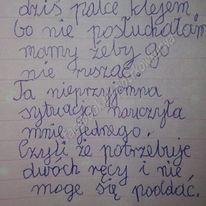 dziś palce klejem,
bo nie posłuchałam
mamy żeby go
nie ruszać.
Ta nieprzyjemna
sytuacja nauczyła
mnie jednego.
Czyli że potrzebuje
dwoch ręcy i nie
moge się poddać.